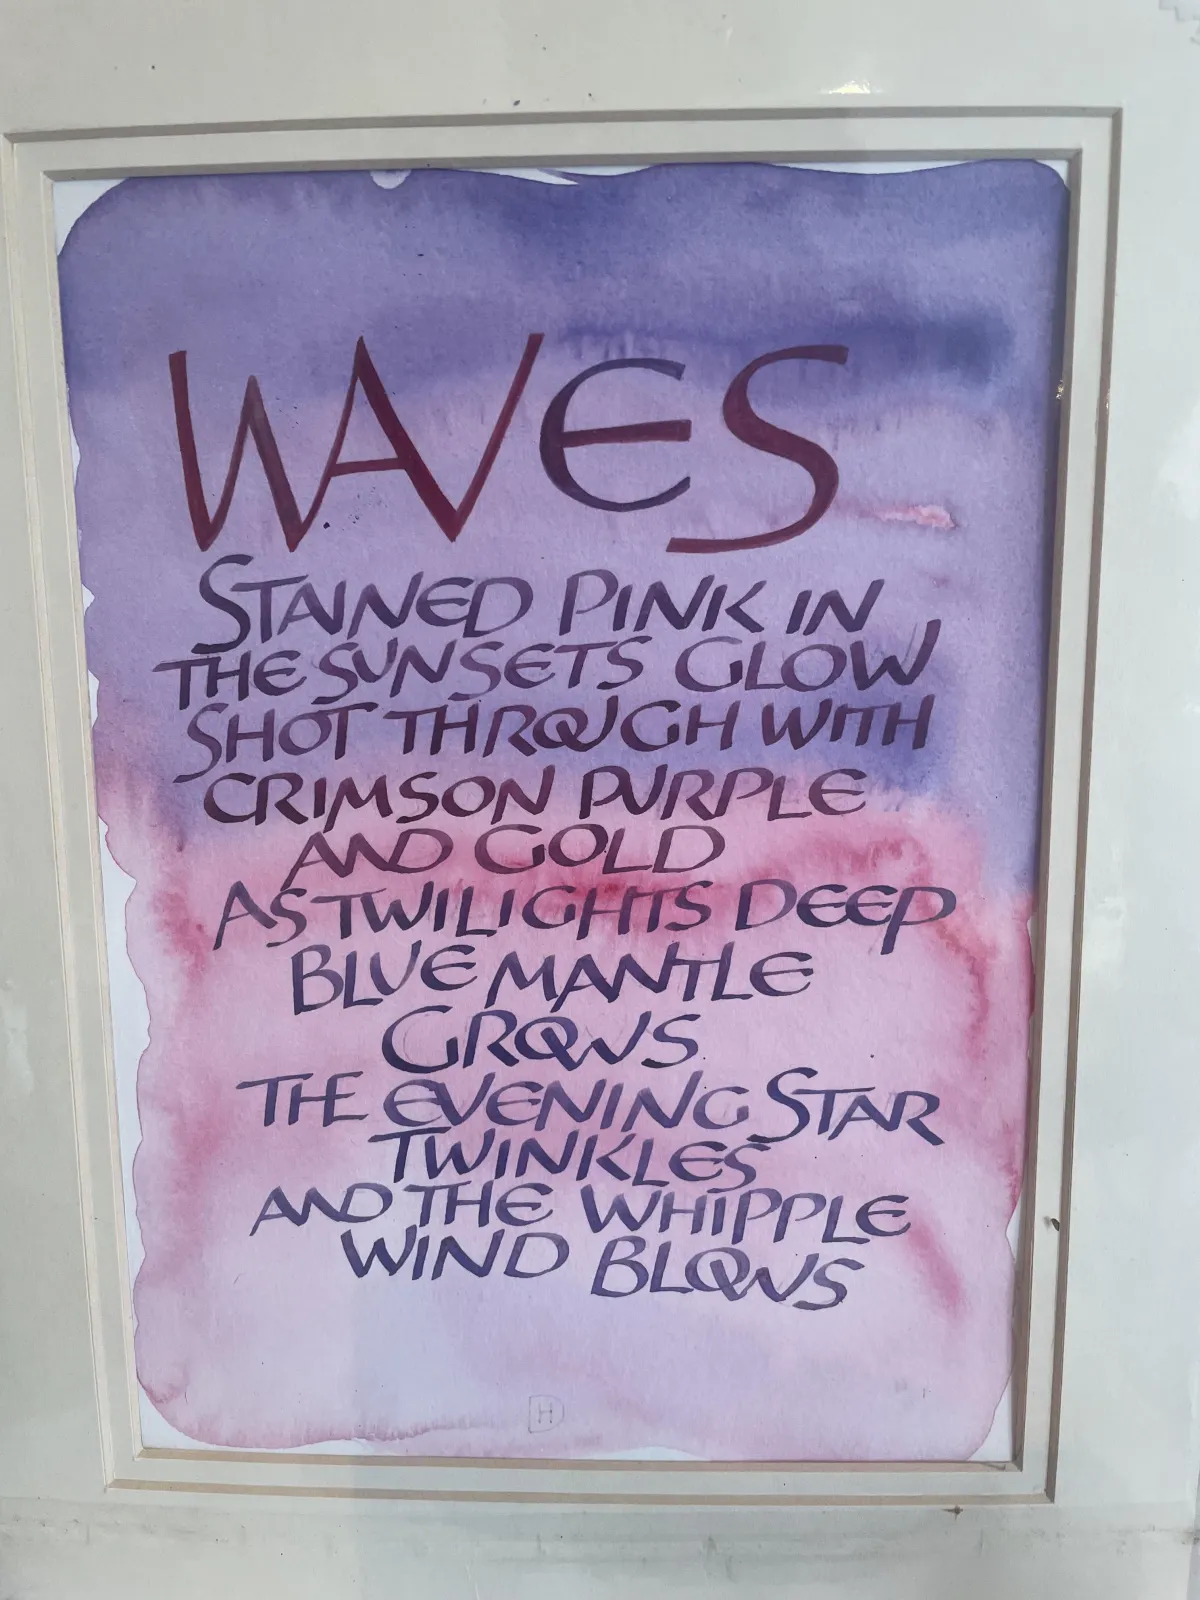 WAVES
STAINED PINK IN
THE SUNSETS GLOW
SHOT THROUGH WITH
CRIMSON PURPLE
AND GOLD
AS TWILIGHTS DEEP
BLUE MANTLE
GROWS
THE EVENING STAR
TWINKLES
AND THE WHIPPLE
WIND BLOWS
H